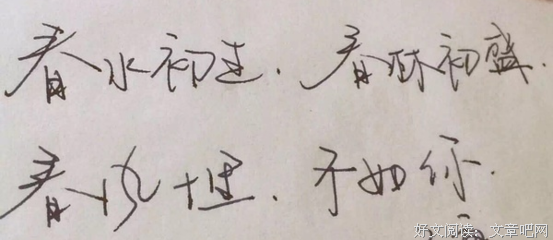 春水初生. 春林初盛.
春风十里. 不如你.
好文阅读：文章吧网